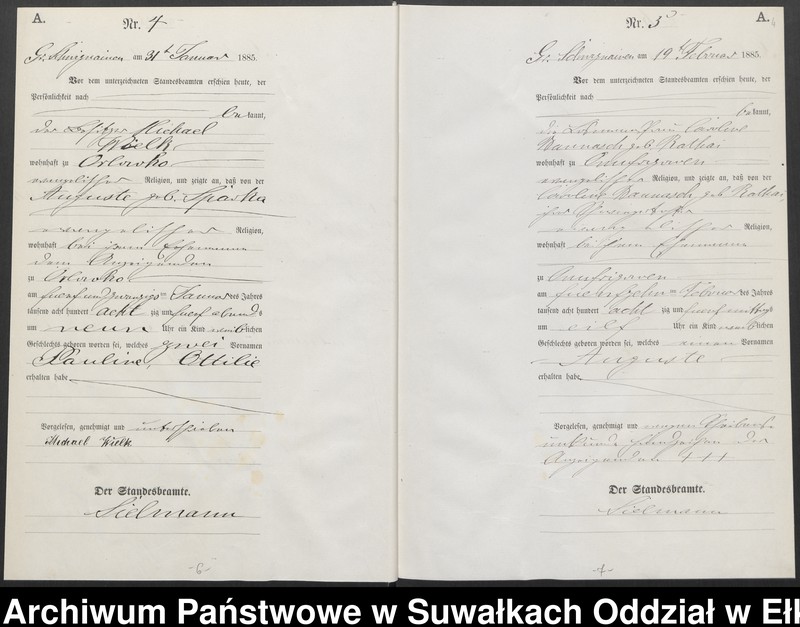 A.
Nr. 4
am 31ᵗ Januar 1885.
Vor dem unterzeichneten Standesbeamten erschien heute, der
Persönlichkeit nach
bekannt,
der Besitzer Michael
Wielk
wohnhaft zu Orlowko
evangelischer Religion, und zeigte an, daß von der
Auguste geb.
evangelischer Religion,
wohnhaft bei ihrem Ehemanne
dem Anzeigenden
zu Orlowko
am fünfundzwanzigsten Januar des Jahres
tausend acht hundert achtzig und fünf abends
um neun Uhr ein Kind weiblichen
Geschlechts geboren worden sei, welches zwei Vornamen
Pauline, Ottilie
erhalten habe.
Vorgelesen, genehmigt und unterschrieben
Michael Wielk
Der Standesbeamte.
Sielmann
-6-
A.
Nr. 5
am 19 Februar 1885.
Vor dem unterzeichneten Standesbeamten erschien heute, der
Persönlichkeit nach
bekannt,
die Caroline
Bannasch geb. Kathai
wohnhaft zu
evangelischer Religion, und zeigte an, daß von der
Caroline Bannasch geb. Kathai
evangelischer Religion,
wohnhaft bei ihrem Ehemanne
zu
am fünfzehnten Februar des Jahres
tausend acht hundert achtzig und fünf
um elf Uhr ein Kind weiblichen
Geschlechts geboren worden sei, welches einen Vornamen
Auguste
erhalten habe.
Vorgelesen, genehmigt und wegen Schreibens-
unkunde Handzeichen der
Anzeigenden +++
Der Standesbeamte.
Sielmann
-7-
Archiwum Państwowe w Suwałkach Oddział w Ełk